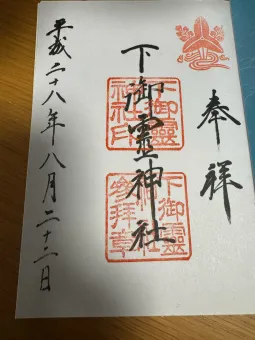 奉拝
下御靈神社
下御靈
神社印
下御靈
神社
參拝章
平成二十八年八月二十二日